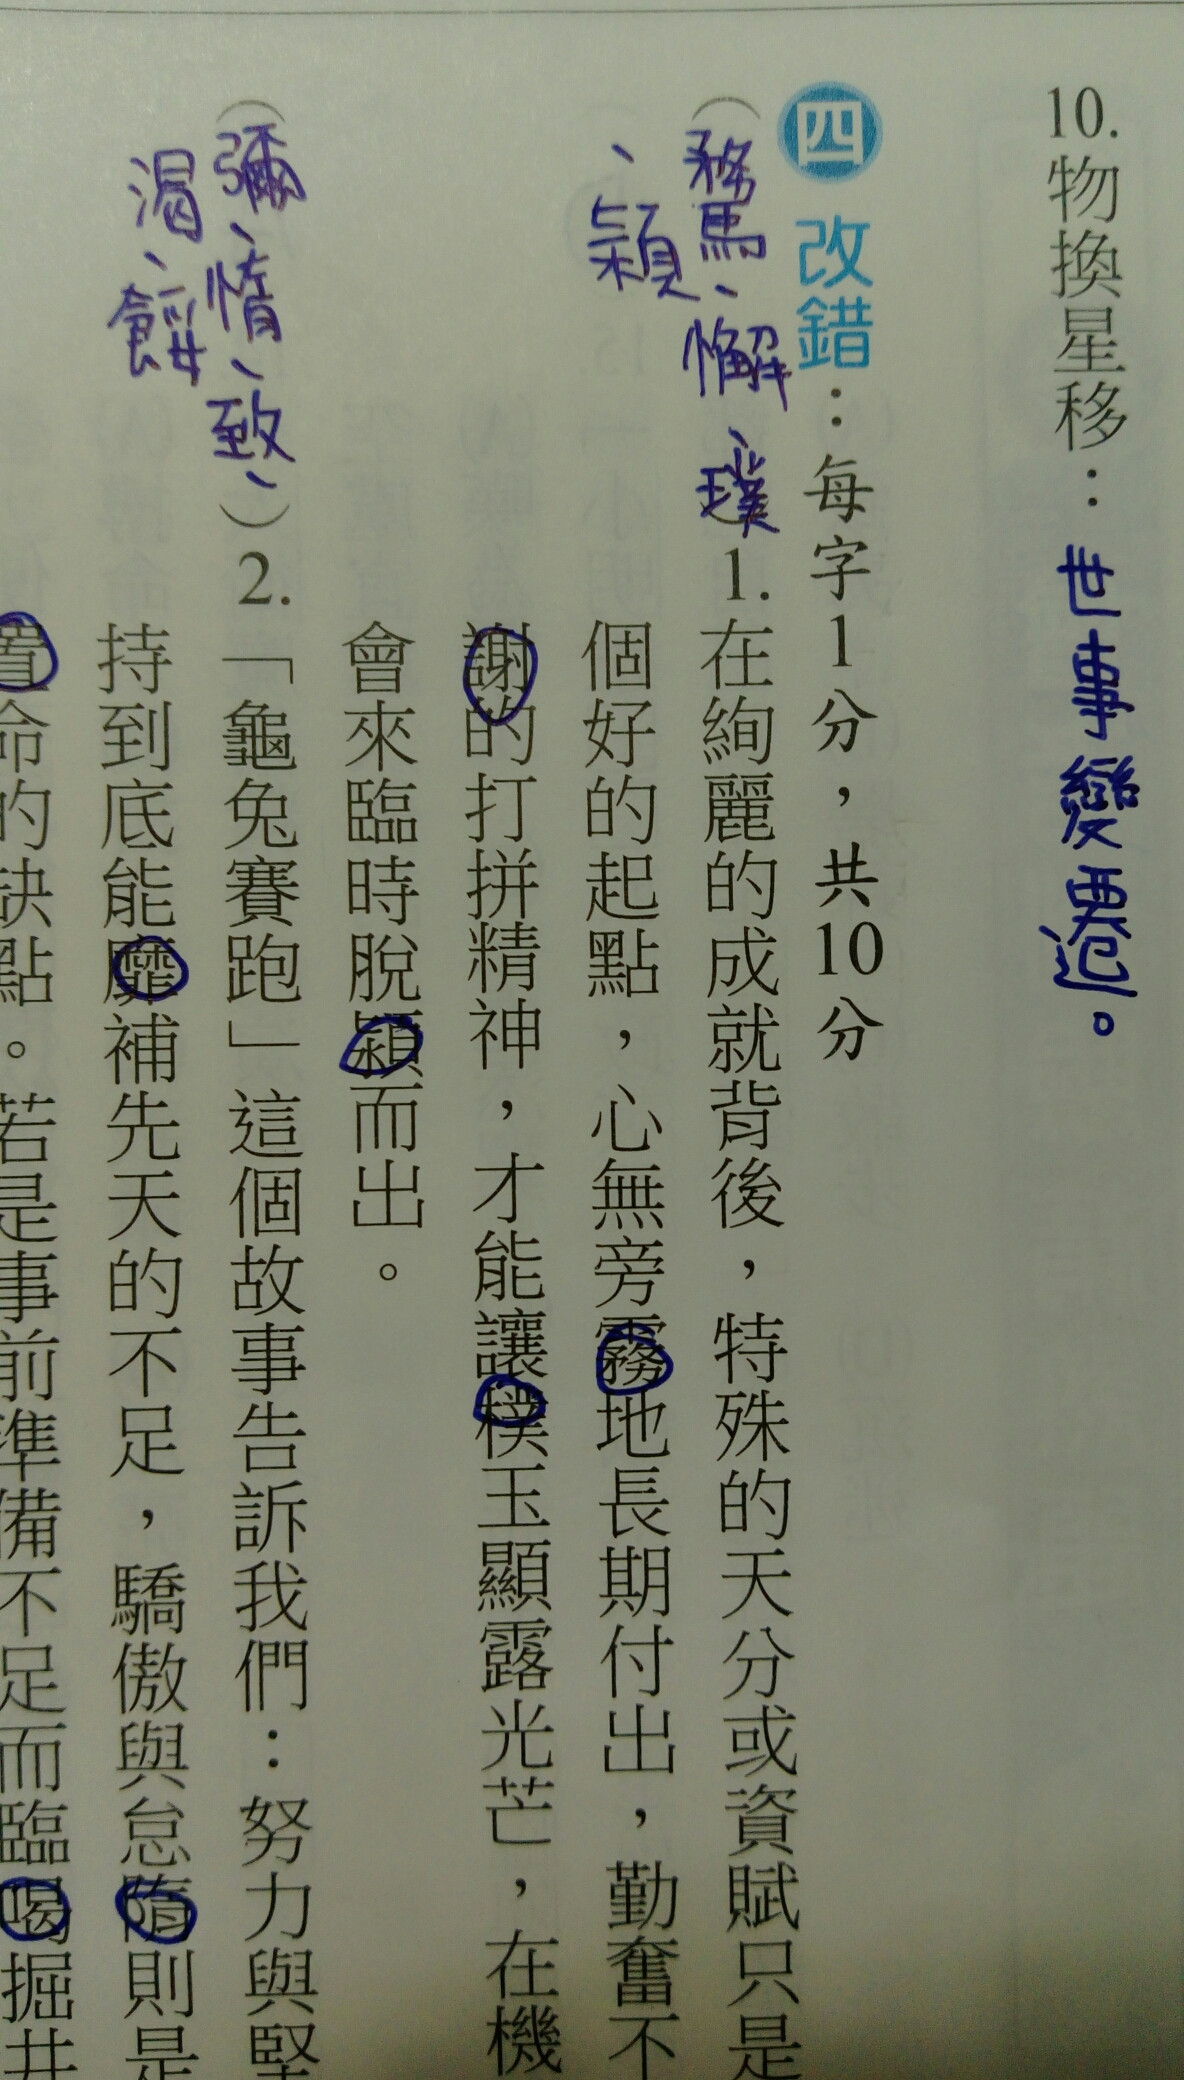 10. 物換星移：世事變遷。
四 改錯：每字1分，共10分
（騖、懈、璞
、穎
1. 在絢麗的成就背後，特殊的天分或資賦只是
個好的起點，心無旁霧地長期付出，勤奮不
謝的打拼精神，才能讓樸玉顯露光芒，在機
會來臨時脫穎而出。
（彌、惰、致、）
渴、餒
2. 「龜兔賽跑」這個故事告訴我們：努力與堅
持到底能靡補先天的不足，驕傲與怠隋則是
置命的缺點。若是事前準備不足而臨喝掘井